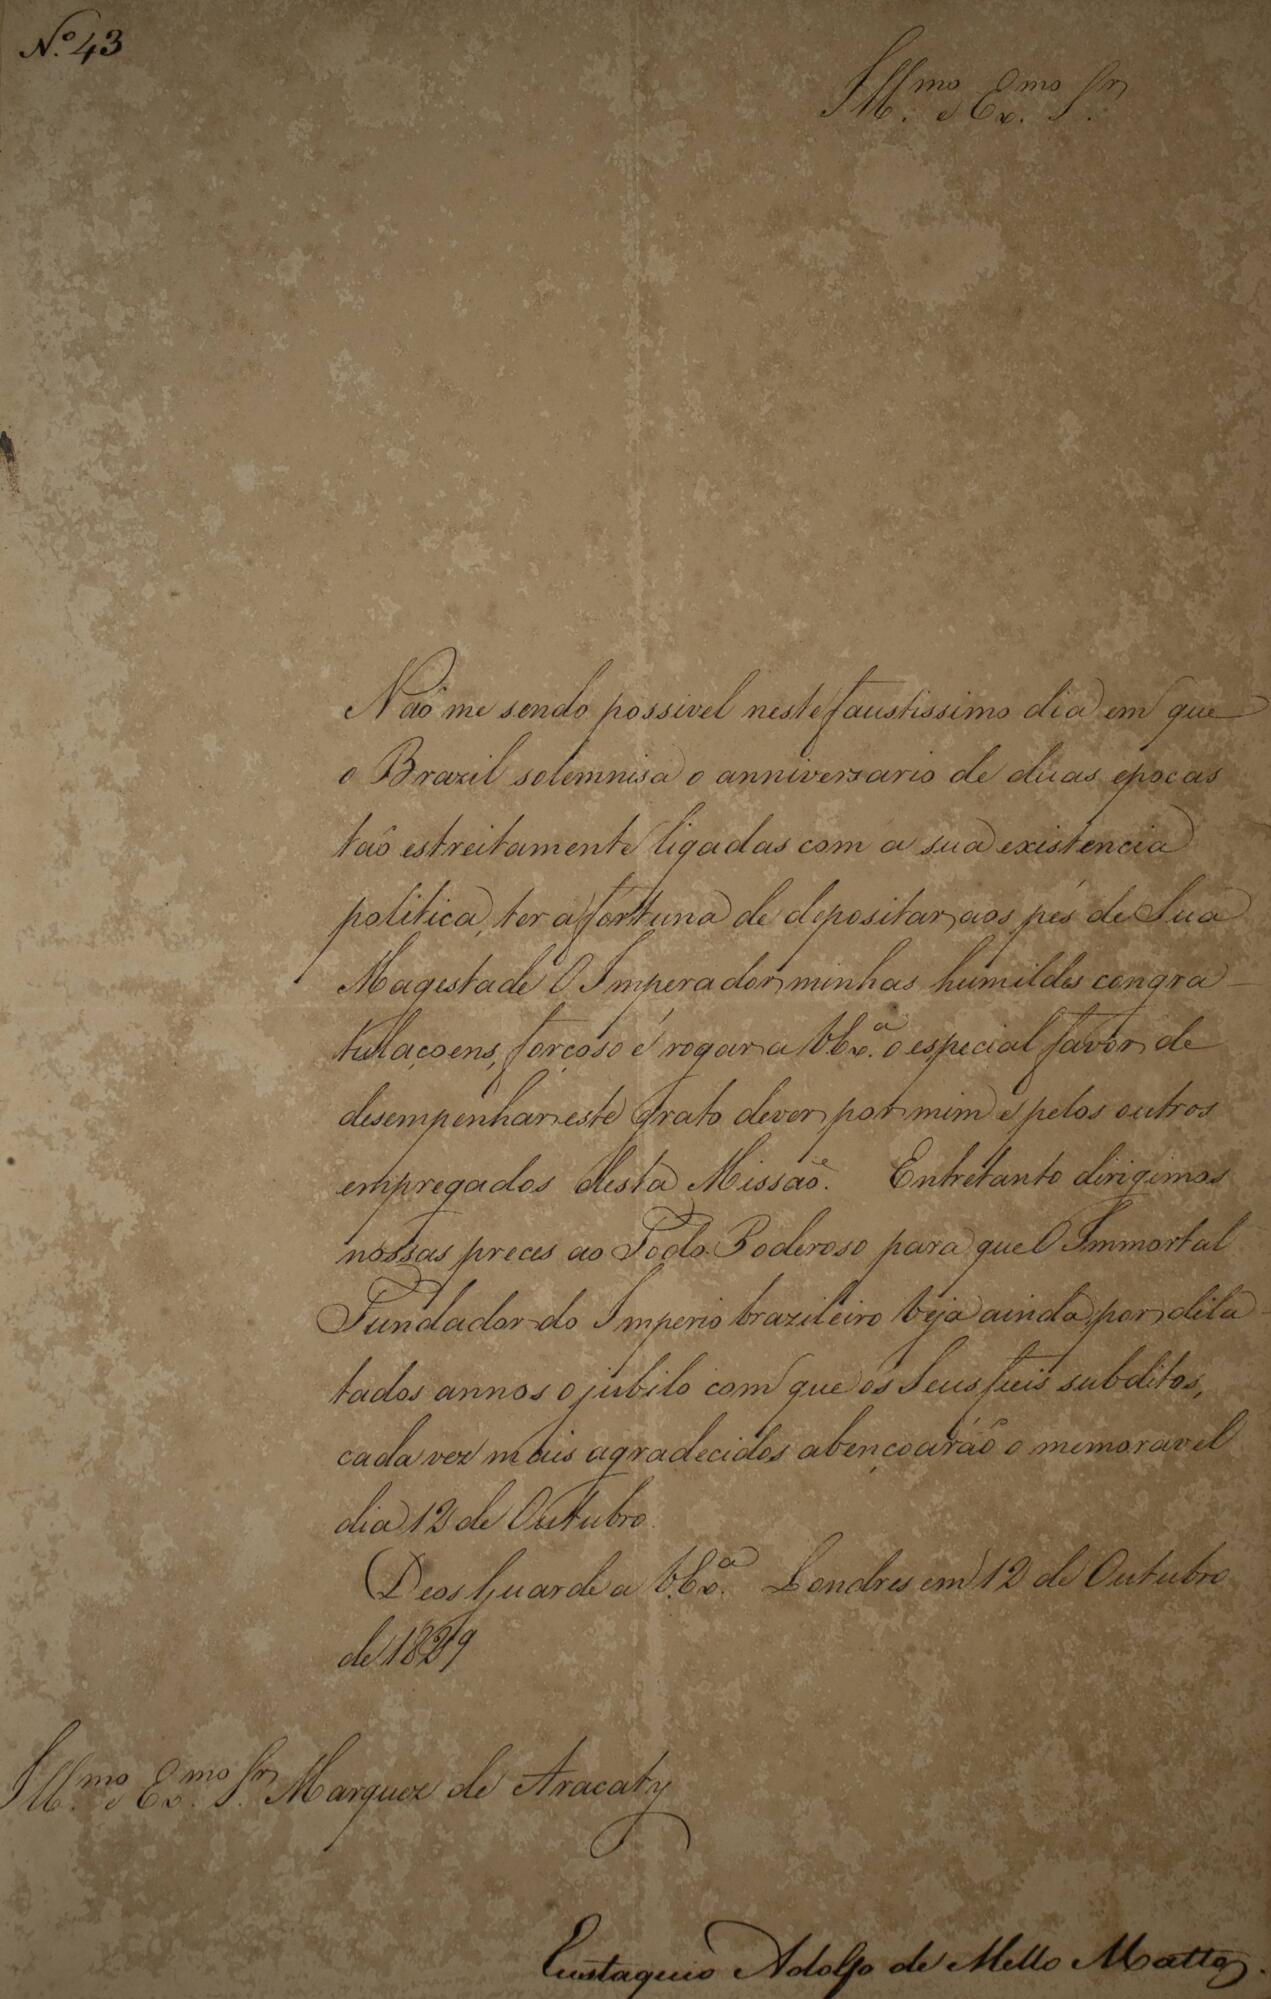 N.º 43
Ill.mo e Ex.mo Sr.
Naõ me sendo possivel neste faustissimo dia em que
o Brazil solemnisa o anniversario de duas epocas
taõ estreitamente ligadas com a sua existencia
politica, ter a fortuna de depositar aos pés de Sua
Magestade O Imperador minhas humildes congra-
tulaçoens, forçoso é rogar a V.Ex.ª o especial favor de
desempenhar este grato dever por mim e pelos outros
empregados desta Missaõ. Entretanto dirigimos
nossas preces ao Todo Poderoso para que O Immortal
Fundador do Imperio brazileiro veja ainda por dila-
tados annos o jubilo com que os Seus fieis subditos,
cada vez mais agradecidos abençoaráõ o memoravel
dia 12 de Outubro.
Deos Guarde a V.Ex.ª Londres em 12 de Outubro
de 1829
Ill.mo e Ex.mo Sr. Marquez de Aracaty
Eustaquio Adolfo de Mello Mattos.